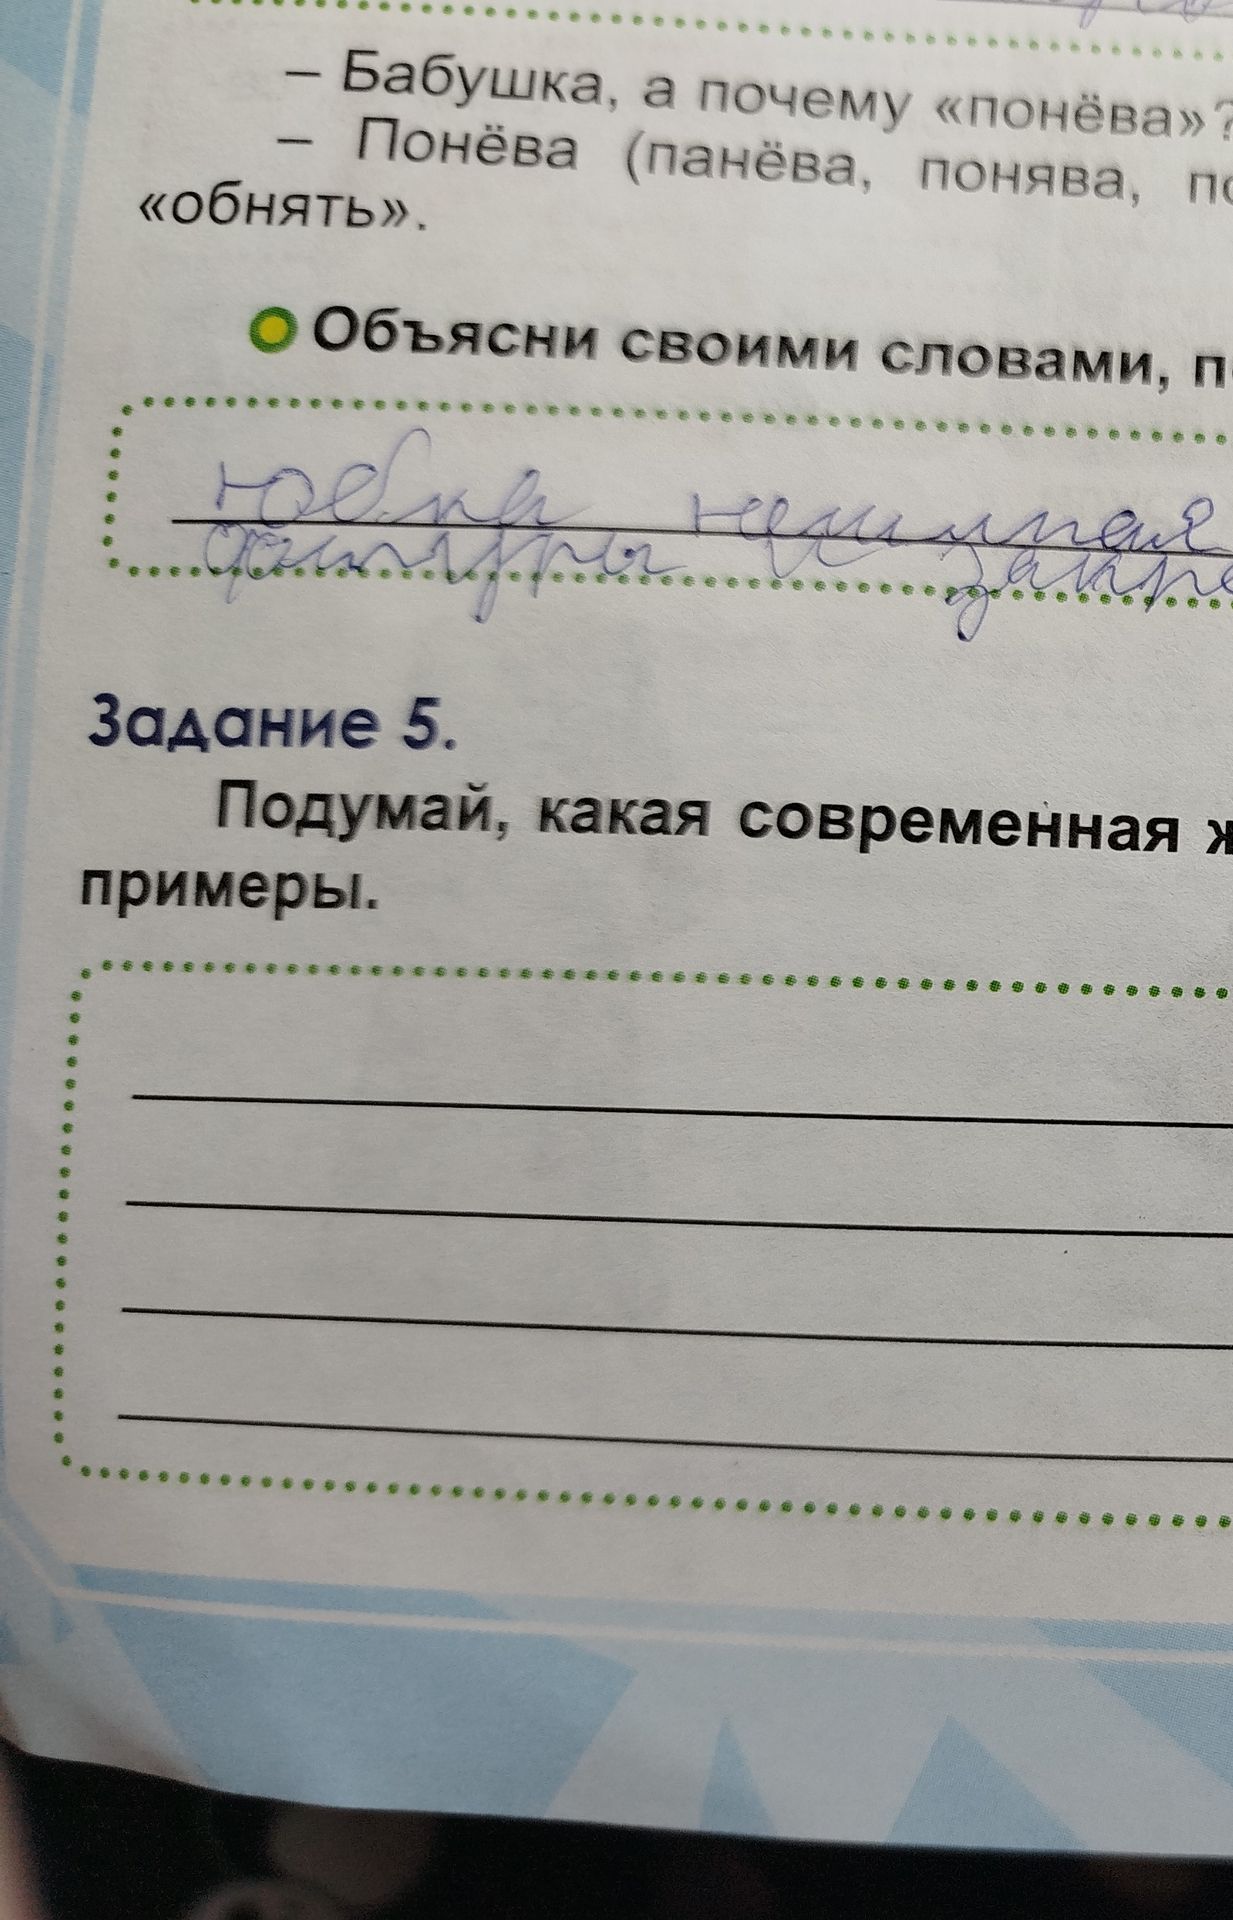 – Бабушка, а почему «понёва»?
– Понёва (панёва, понява, по
«обнять».
Объясни своими словами, п
юбка
фигуры и закре
Задание 5.
Подумай, какая современная ж
примеры.